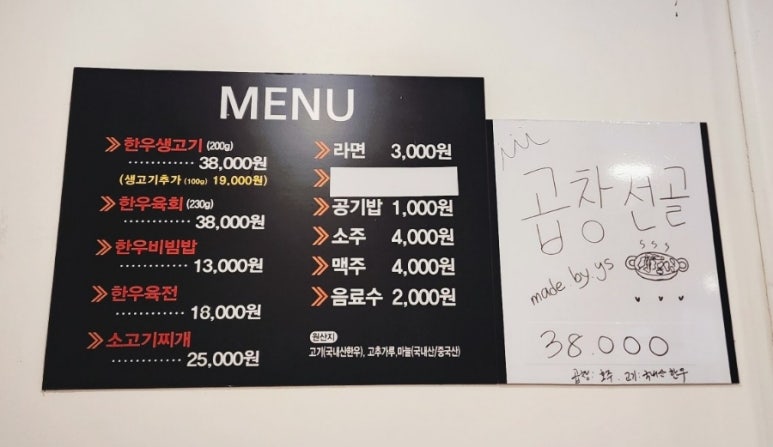 MENU
한우생고기 (200g)
············ 38,000원
(생고기추가 (100g) 19,000원)
한우육회 (230g)
············ 38,000원
한우비빔밥
············ 13,000원
한우육전
············ 18,000원
소고기찌개
············ 25,000원
라면 3,000원
공기밥 1,000원
소주 4,000원
맥주 4,000원
음료수 2,000원
원산지
고기(국내산한우), 고추가루,마늘(국내산/중국산)
곱창전골
made.by.ys
38.000
곱창: 호주. 고기: 국내산 한우